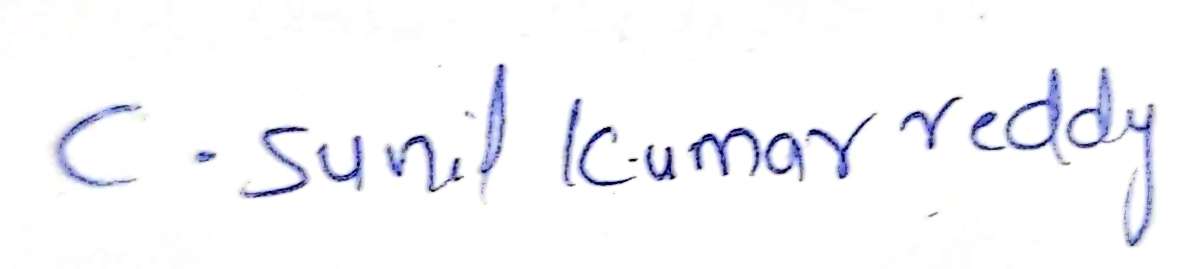 C. Sunil Kumar reddy